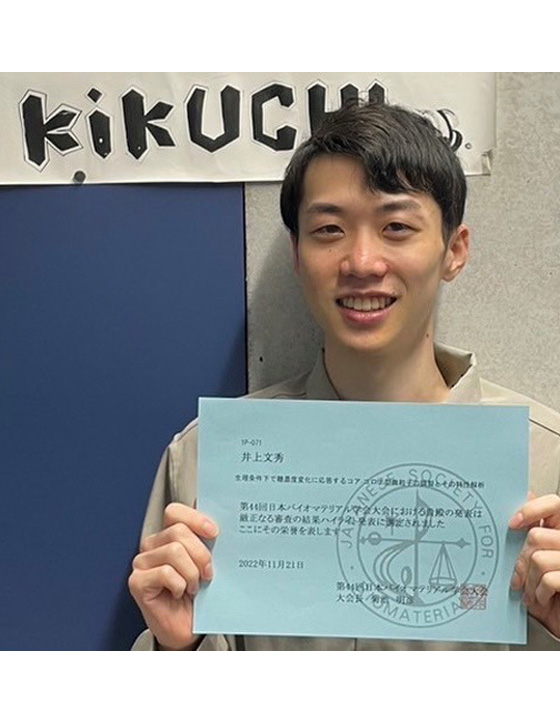 KiKUCHI
1P-071
井上文秀
生理条件下で糖濃度変化に応答するコア コロナ型微粒子の調製とその特性解析
第44回日本バイオマテリアル学会大会における貴殿の発表は
厳正なる審査の結果ハイライト発表に選定されました
ここにその栄誉を表します
2022年11月21日
第44回日本バイオマテリアル学会大会
大会長 菊池 明彦
JAPANESE SOCIETY FOR
BIOMATERIALS